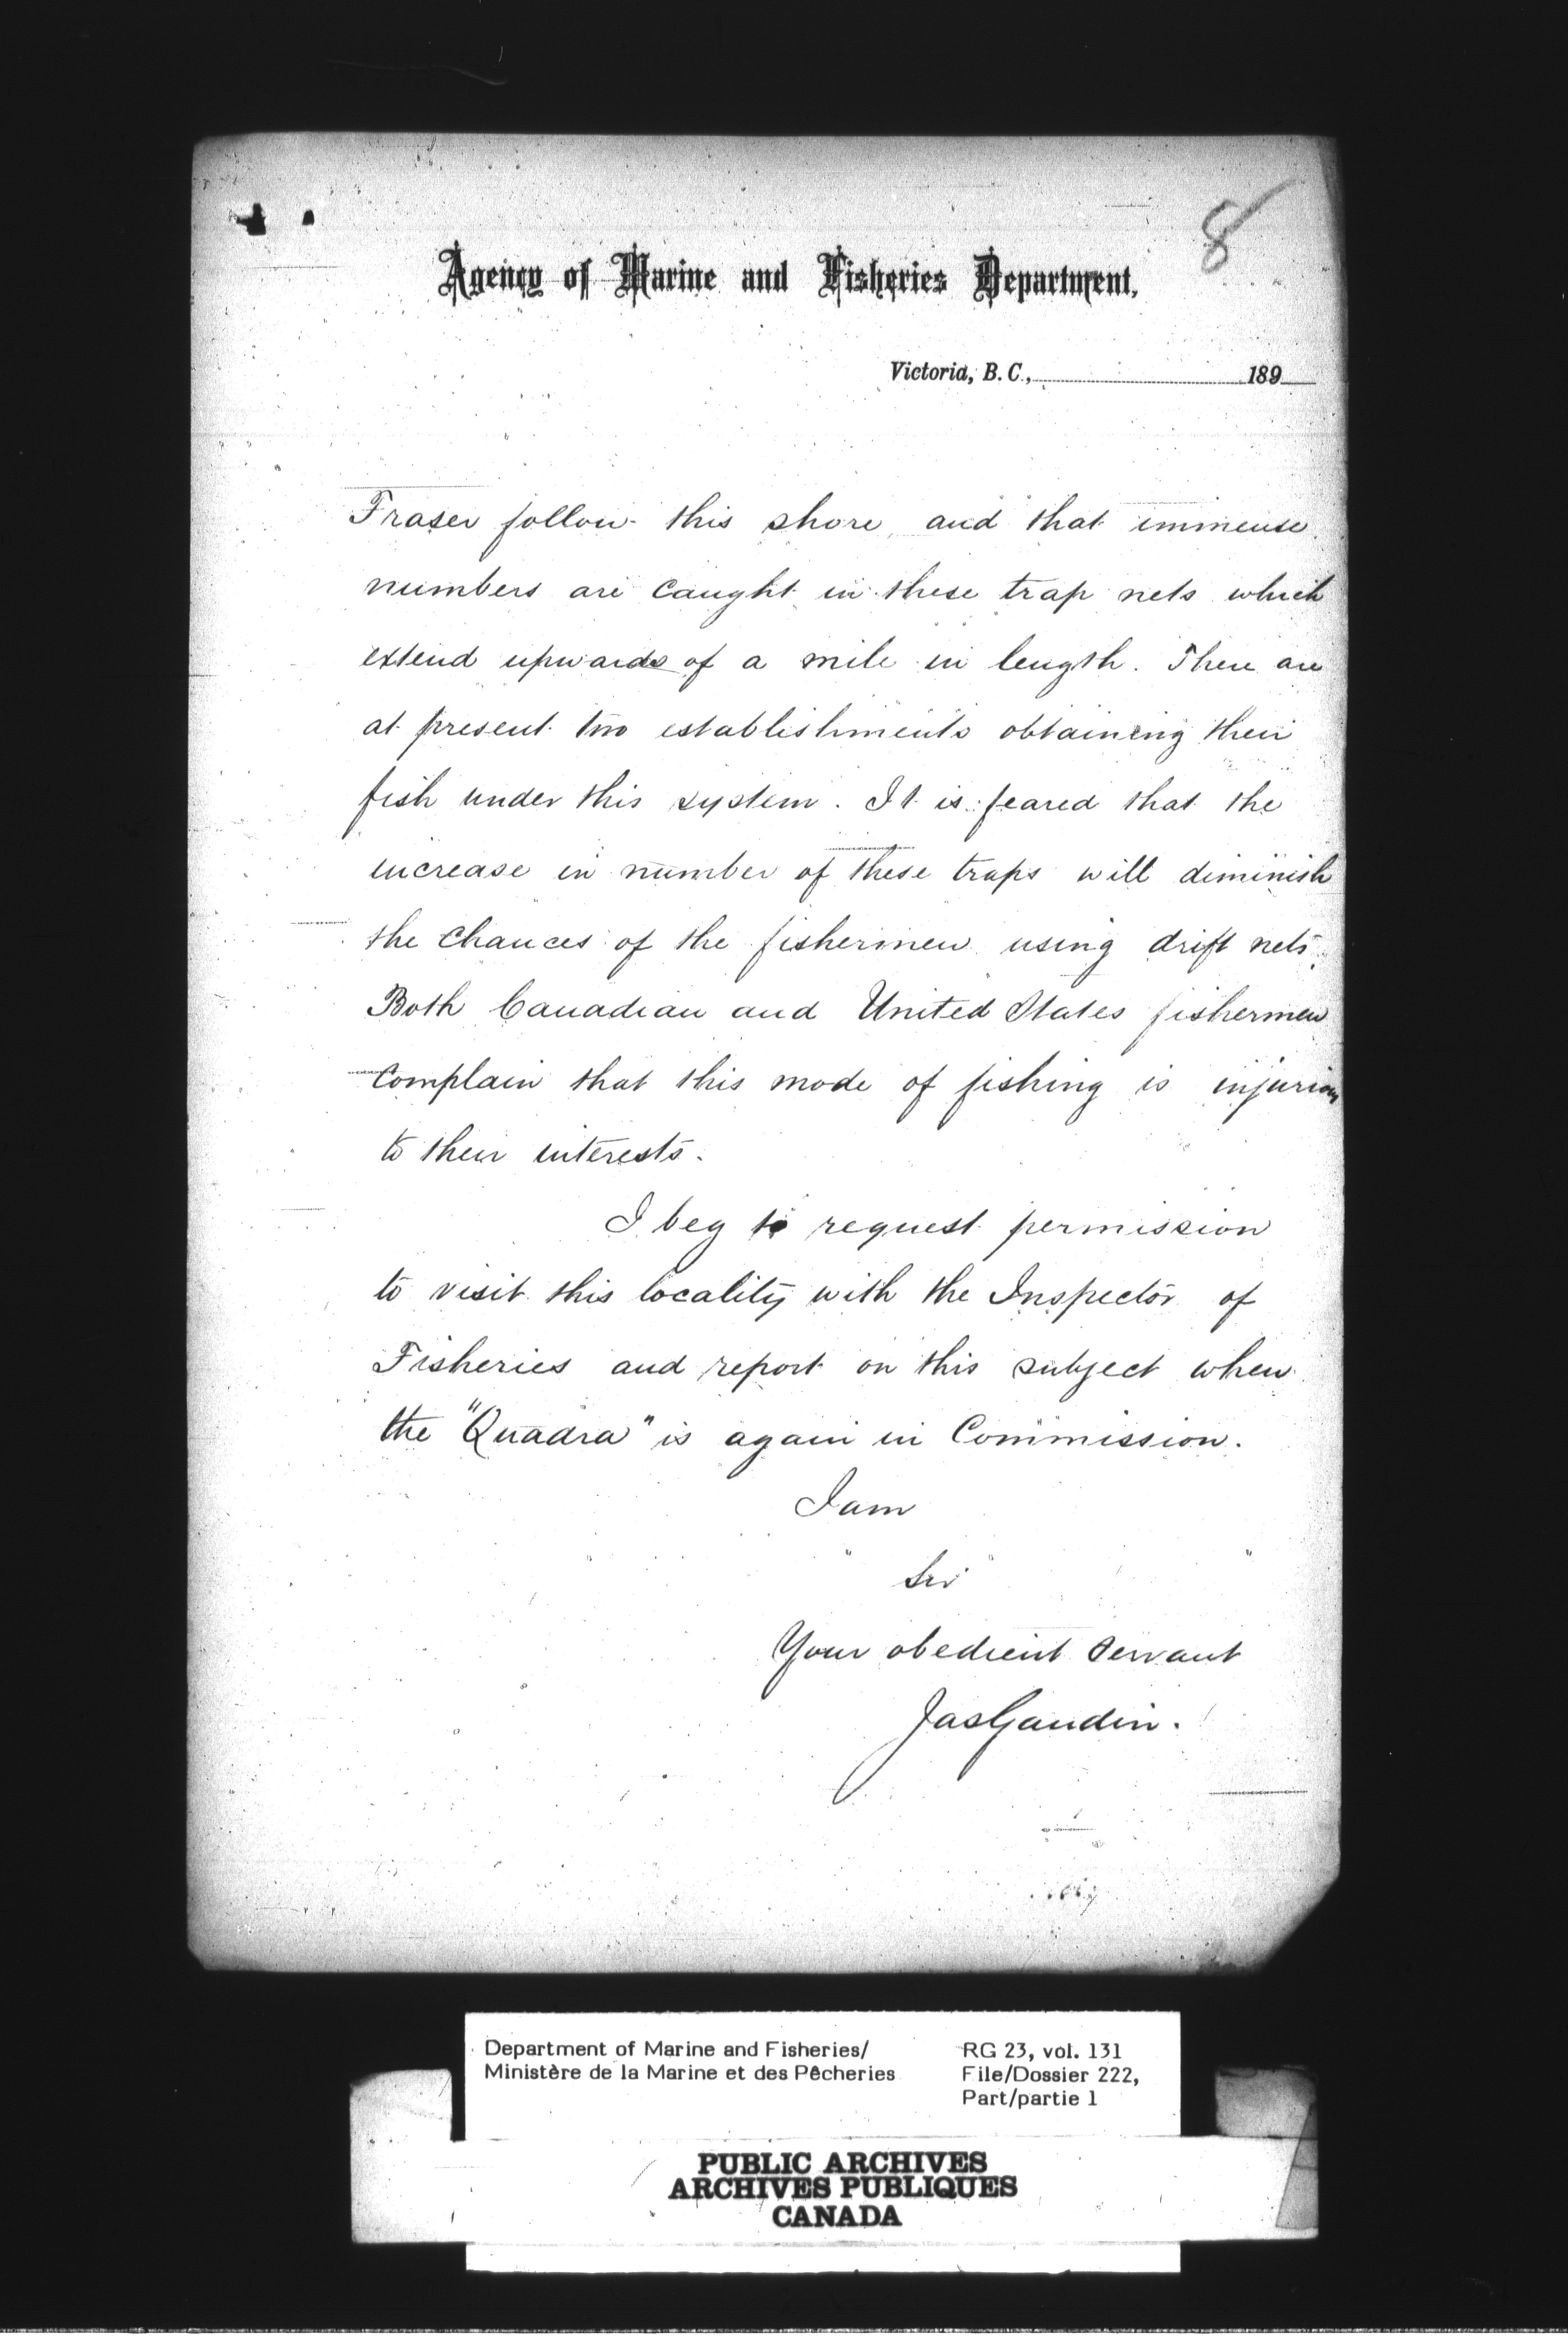 8
Agency of Marine and Fisheries Department.
Victoria, B. C., 189
Fraser follow this shore, and that immense
numbers are caught in these trap nets which
extend upwards of a mile in length. There are
at present two establishments obtaining their
fish under this system. It is feared that the
increase in number of these traps will diminish
the chances of the fishermen using drift nets.
Both Canadian and United States fishermen
complain that this mode of fishing is injurious
to their interests.
I beg to request permission
to visit this locality with the Inspector of
Fisheries and report on this subject when
the "Quadra" is again in Commission.
I am
Sir
Your obedient Servant
Jas Gaudin.
Department of Marine and Fisheries/ RG 23, vol. 131
Ministère de la Marine et des Pêcheries File/Dossier 222,
Part/partie 1
PUBLIC ARCHIVES
ARCHIVES PUBLIQUES
CANADA